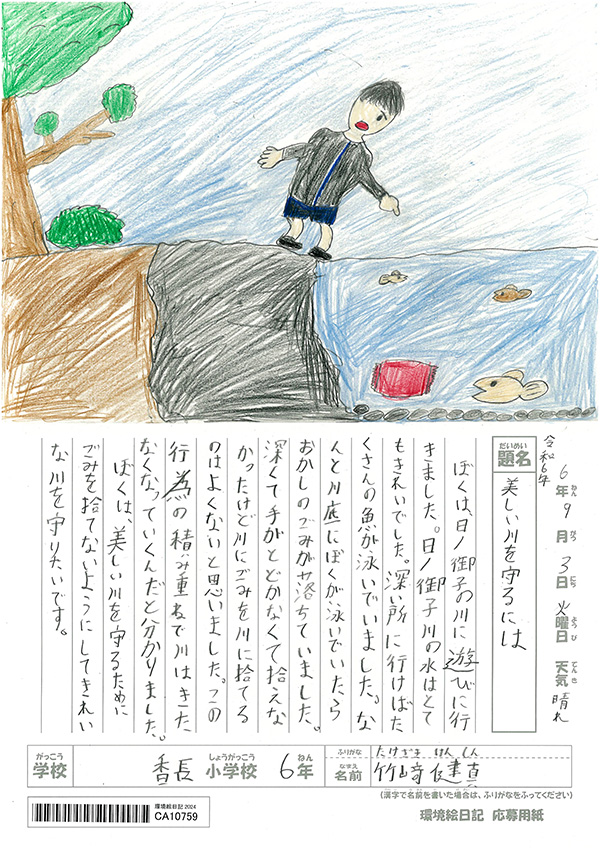 令和6年
6年9月3日火曜日 天気 晴れ
ねん がつ にち ようび てんき
だいめい
題名 美しい川を守るには
ぼくは、日ノ御子の川に遊びに行
きました。日ノ御子川の水はとて
もきれいでした。深い所に行けばた
くさんの魚が泳いでいました。な
んと川底にぼくが泳いでいたら
おかしのごみが落ちていました。
深くて手がとどかなくて拾えな
かったけど川にごみを川に捨てる
のはよくないと思いました。この
行為の積み重ねで川はきた
なくなっていくんだと分かりました。
ぼくは、美しい川を守るために
ごみを捨てないようにしてきれい
な川を守りたいです。
がっこう しょうがっこう ねん
学校 香長 小学校 6年
ふりがな たけざき けんしん
なまえ
名前 竹﨑健真
(漢字で名前を書いた場合は、ふりがなをふってください)
環境絵日記 2024
CA10759
環境絵日記 応募用紙